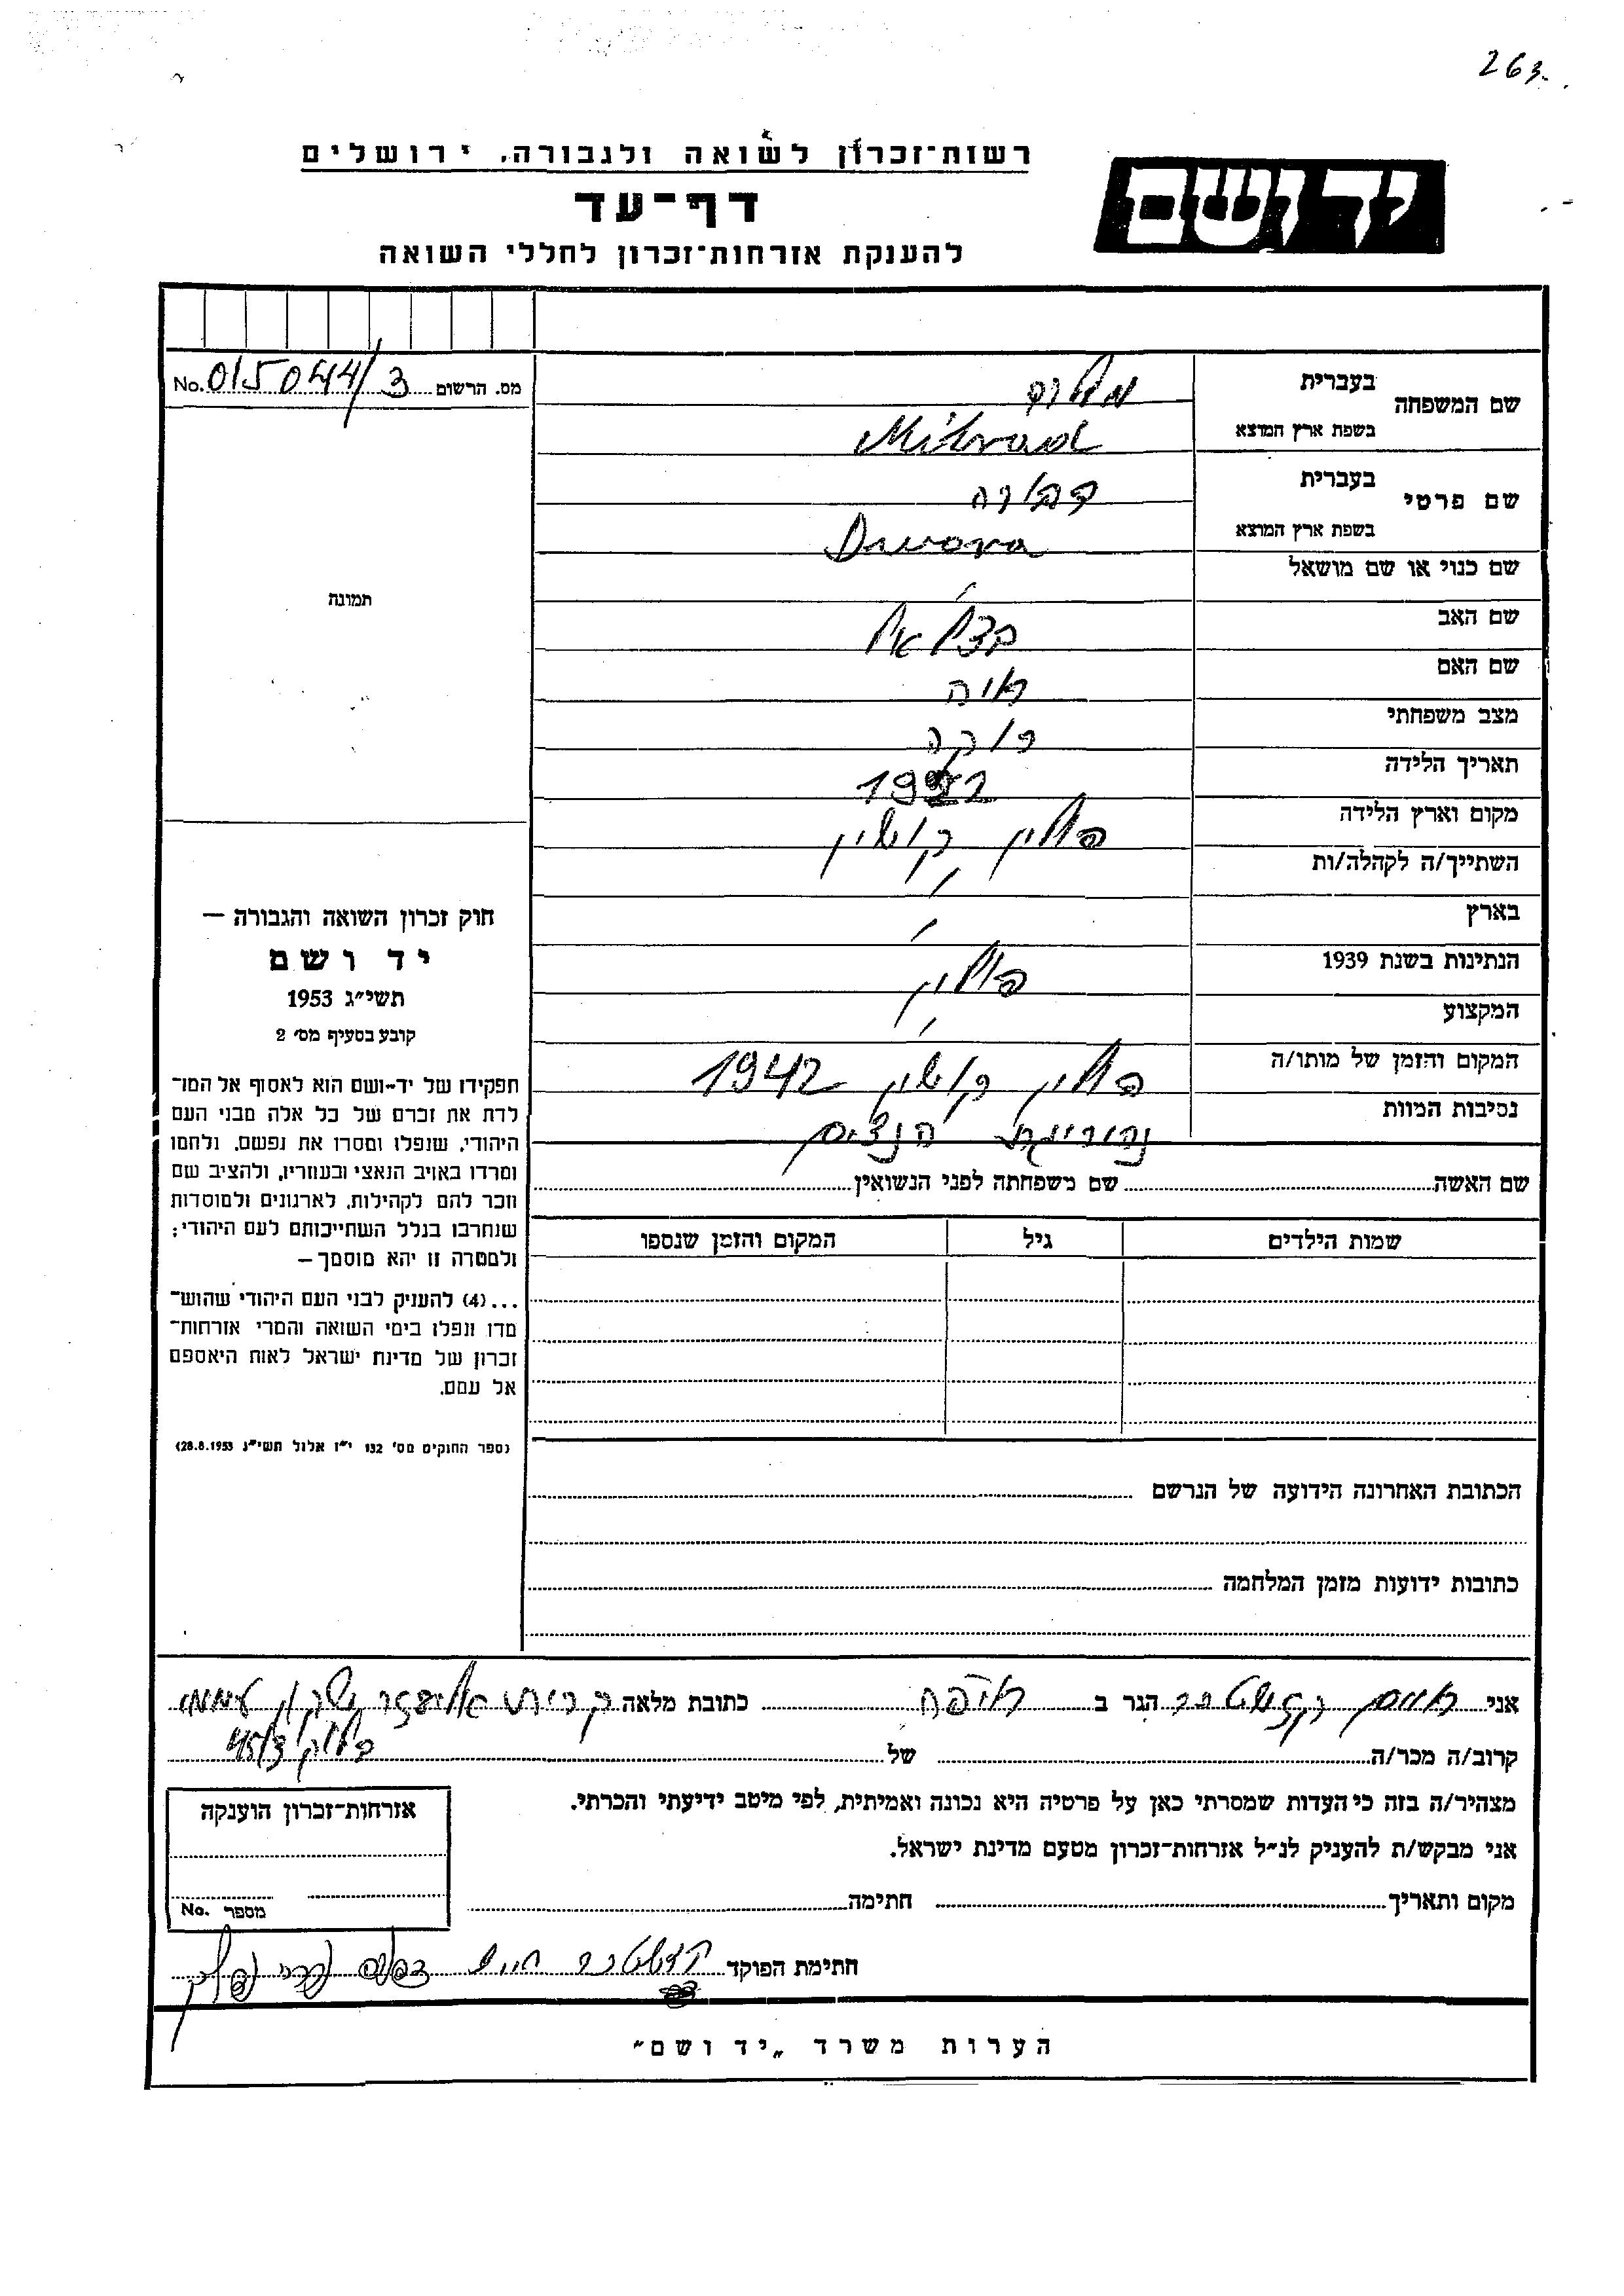 263
רשות־זכרון לשואה ולגבורה, ירושלים
יד ושם
דף־עד
להענקת אזרחות־זכרון לחללי השואה
מס. הרשום 015044/3 No.
שם המשפחה
בעברית
בשפת ארץ המוצא Milrad
שם פרטי
בעברית דבורה
בשפת ארץ המוצא Dwora
שם כנוי או שם מושאל
תמונה
שם האב בצלאל
שם האם חיה
מצב משפחתי רוקה
תאריך הלידה
מקום וארץ הלידה פולין
השתייך/ה לקהלה/ות
בארץ
הנתינות בשנת 1939 פולין
המקצוע
המקום והזמן של מותו/ה פולין 1942
נסיבות המוות
שם האשה שם משפחתה לפני הנשואין
שמות הילדים גיל המקום והזמן שנספו
חוק זכרון השואה והגבורה —
יד ושם
תשי"ג 1953
קובע בסעיף מס׳ 2
תפקידו של יד-ושם הוא לאסוף אל המו־
לדת את זכרם של כל אלה מבני העם
היהודי, שנפלו ומסרו את נפשם, נלחמו
ומרדו באויב הנאצי ובעוזריו, ולהציב שם
וזכר להם לקהילות, לארגונים ולמוסדות
שנחרבו בגלל השתייכותם לעם היהודי;
ולמטרה זו יהא מוסמך —
...(4) להעניק לבני העם היהודי שהוש־
מדו ונפלו בימי השואה והמרי אזרחות־
זכרון של מדינת ישראל לאות היאספם
אל עמם.
(ספר החוקים מס׳ 132 י"ז אלול תשי"ג 28.8.1953)
הכתובת האחרונה הידועה של הנרשם
כתובות ידועות מזמן המלחמה
אני חיים הגר ב חיפה כתובת מלאה קרית אליעזר שכון עממי
קרוב/ה מכר/ה של בלוק 45/3
מצהיר/ה בזה כי העדות שמסרתי כאן על פרטיה היא נכונה ואמיתית, לפי מיטב ידיעתי והכרתי.
אני מבקש/ת להעניק לנ"ל אזרחות־זכרון מטעם מדינת ישראל.
מקום ותאריך חתימה
אזרחות־זכרון הוענקה
מספר No.
חתימת הפוקד
הערות משרד „יד ושם"